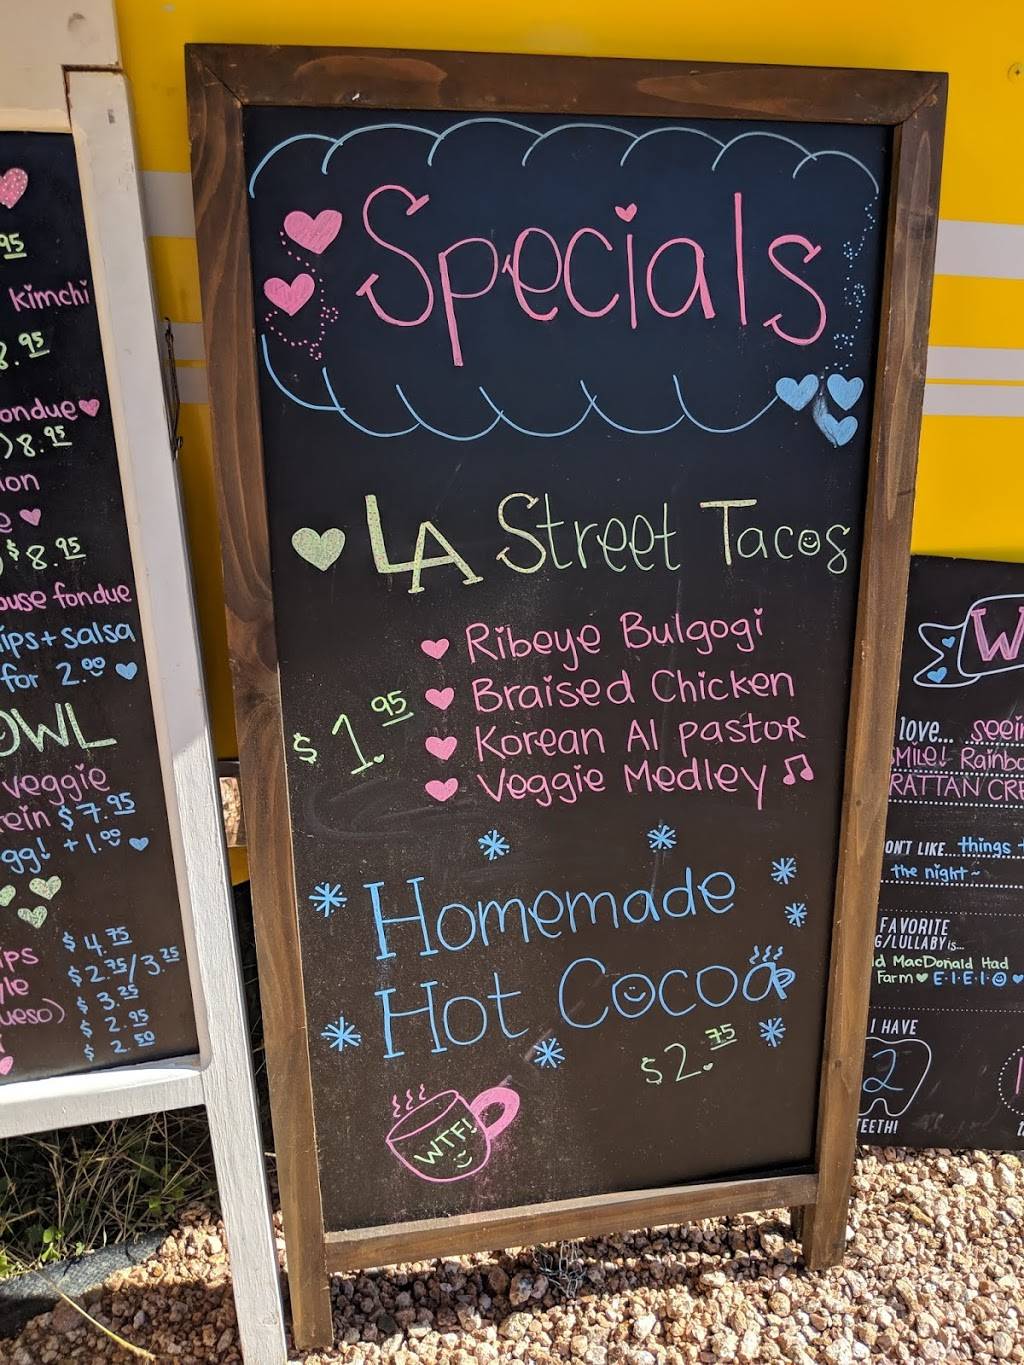 Specials
LA Street Tacos
$1.95
Ribeye Bulgogi
Braised Chicken
Korean Al pastor
Veggie Medley
Homemade
Hot Cocoa
$2.75
WTF!
95
kimchi
8.95
) 8.95
$8.95
fondue
+ salsa
for 2.00
veggie
$7.95
+1.00
$4.75
$2.75/3.25
$3.25
$2.95
$2.50
W
love... 
SMILE! 
LIKE... things
the night~
FAVORITE
/LULLABY is...
MacDonald Had
Farm E-I-E-I-O
I HAVE
2
TEETH!